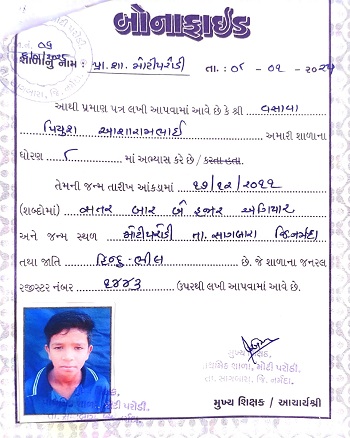 બોનાફાઈડ
નં. ૦૬
શાળાનું નામ : પ્રા. શા. મોટીપરોડી તા. : ૦૬ - ૦૨ - ૨૦૨૫
આથી પ્રમાણ પત્ર લખી આપવામાં આવે છે કે શ્રી વસાવા
પિયુશ આશારામભાઈ અમારી શાળાના
ધોરણ ૮ માં અભ્યાસ કરે છે / કરતા હતા.
તેમની જન્મ તારીખ આંકડામાં ૧૭/૧૨/૨૦૧૧
(શબ્દોમાં) સત્તર બાર બે હજાર અગિયાર
અને જન્મ સ્થળ મોટીપરોડી તા. સાગબારા જિ.નર્મદા
તથા જાતિ હિન્દુ-ભીલ છે. જે શાળાના જનરલ
રજીસ્ટર નંબર ૧૪૪૩ ઉપરથી લખી આપવામાં આવે છે.
મુખ્ય શિક્ષક,
પ્રાથમિક શાળા, મોટી પરોડી.
તા. સાગબારા, જિ. નર્મદા.
મુખ્ય શિક્ષક / આચાર્યશ્રી